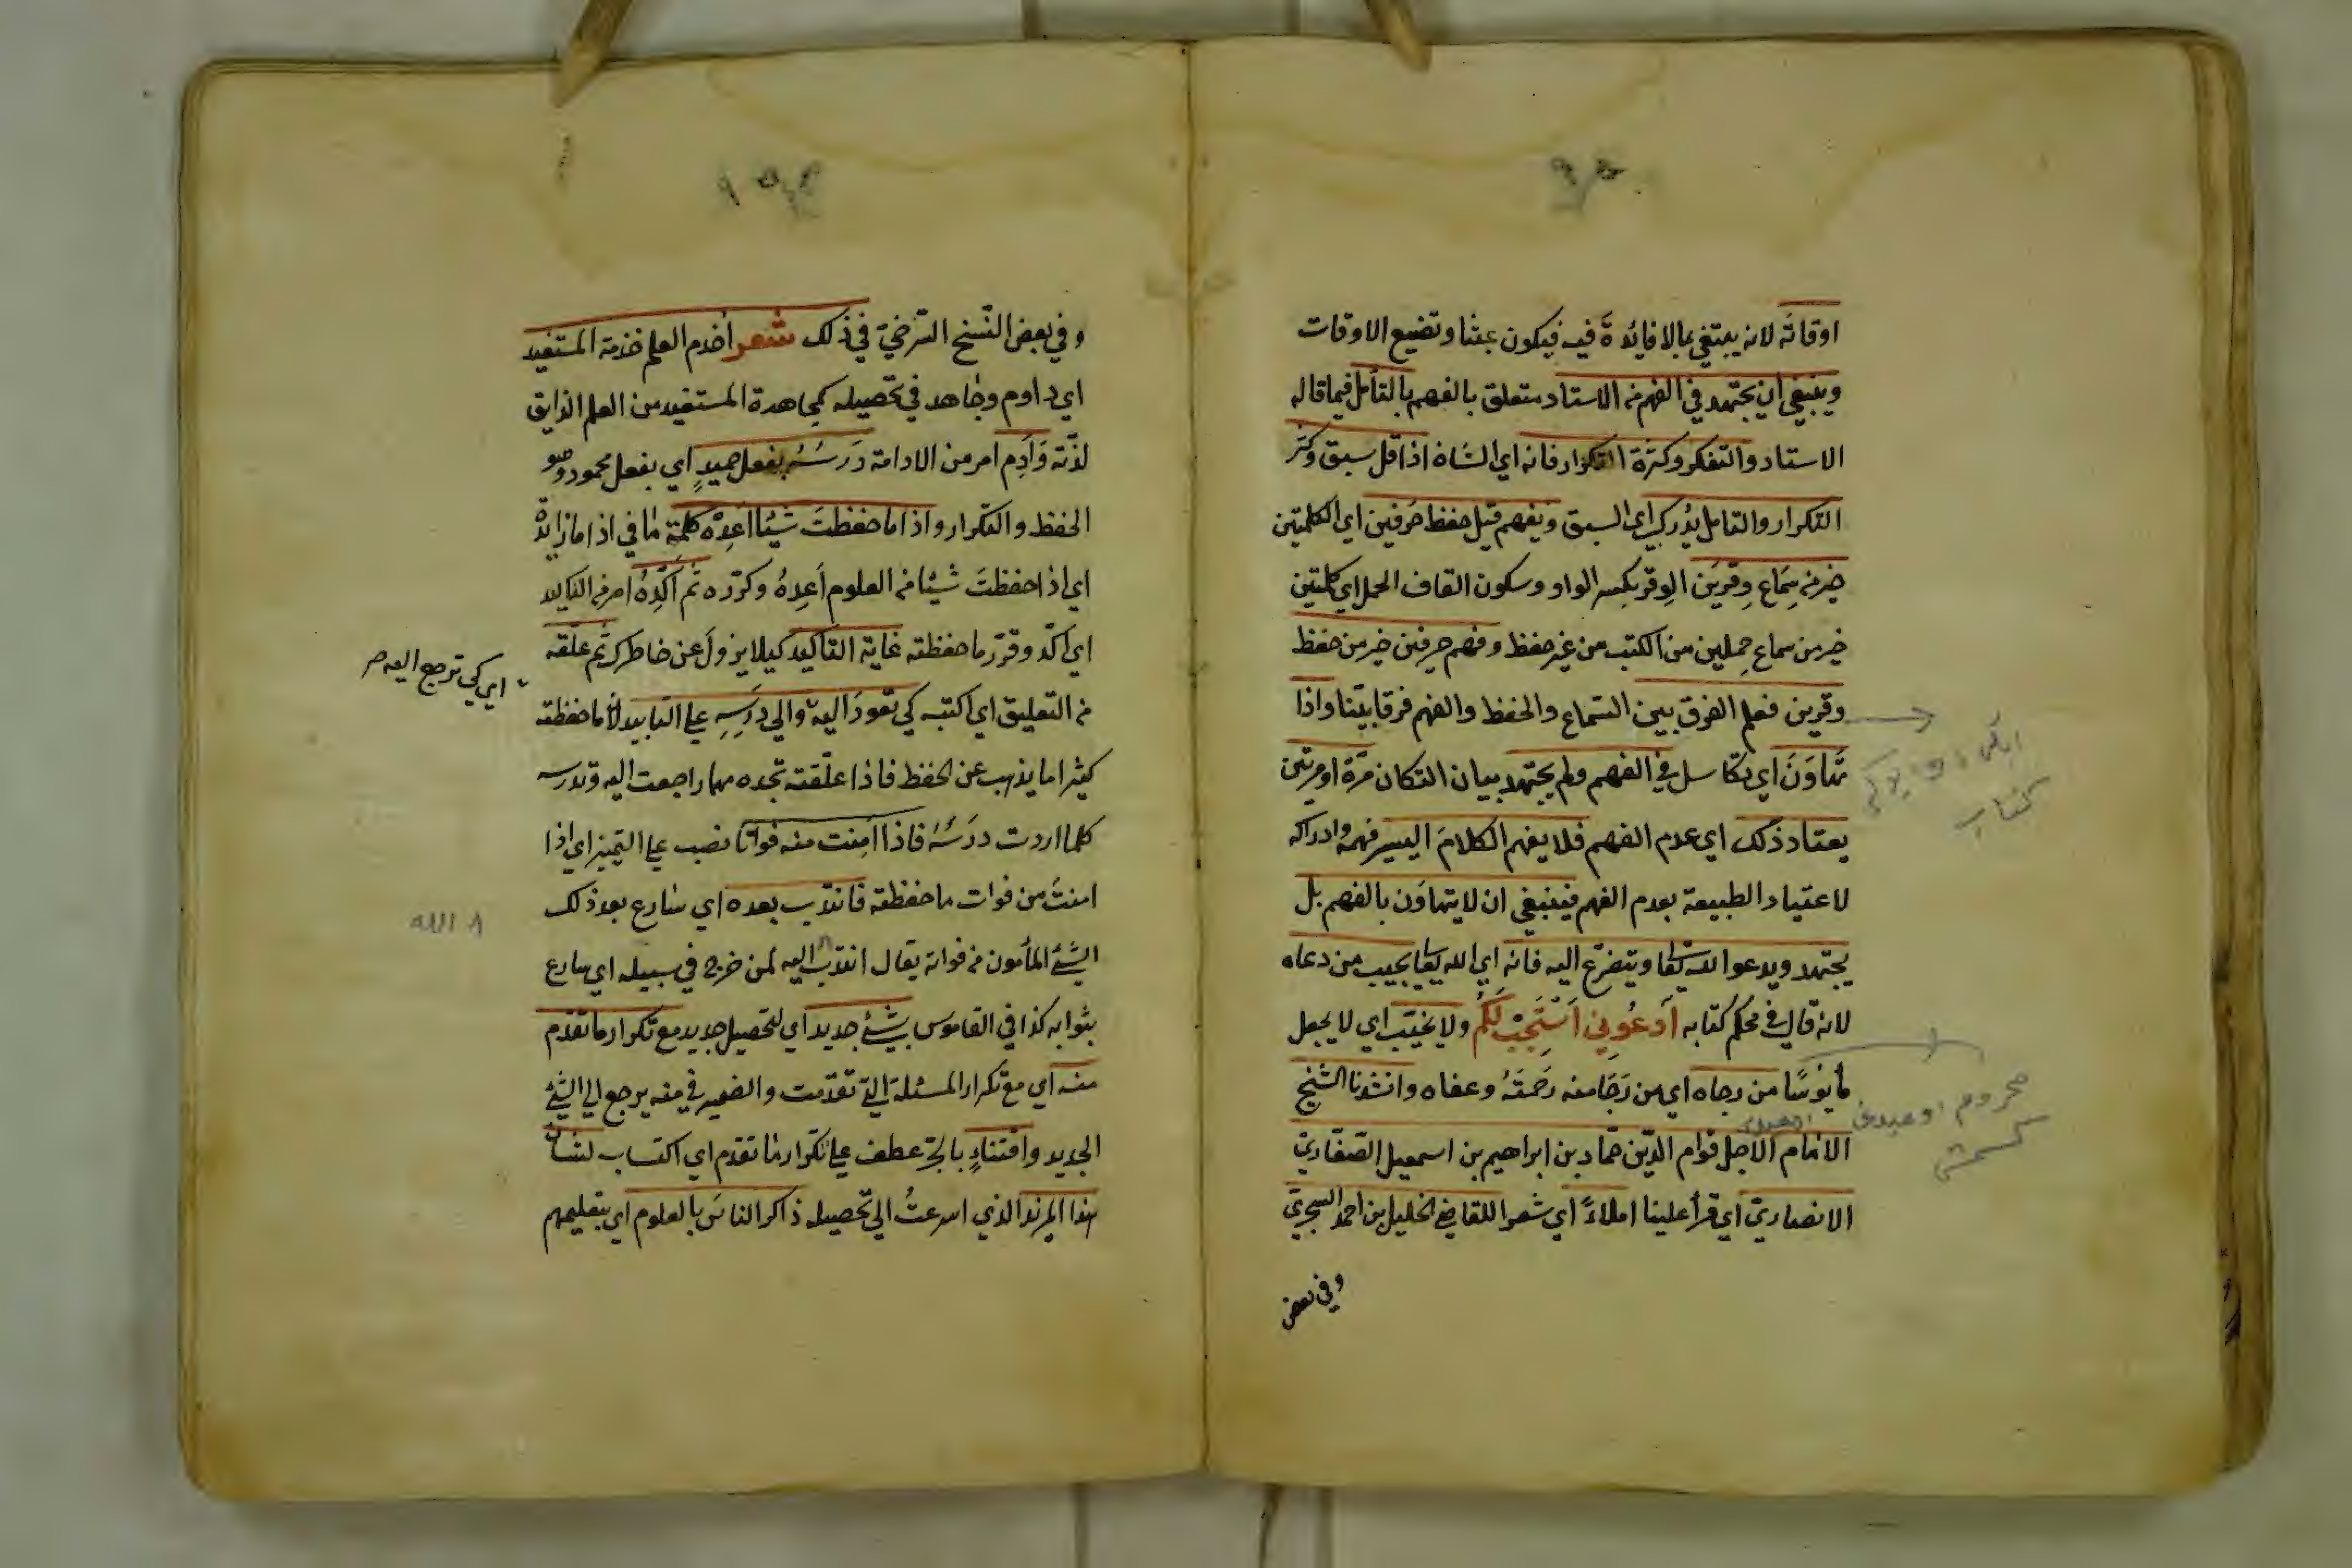 اوقاته لانه يبتغي بما لا فائدة فيه فيكون عبثا وتضييع الاوقات
وينبغي ان يجتهد في الفهم من الاستاد متعلق بالفهم بالتأمل فيما قاله
الاستاد والتفكر وكثرة التكرار فانه اي الشان اذا قل سبق وكثر
التكرار والتامل يدرك اي السبق ويفهم قيل حفظ حرفين اي الكلمتين
خير من سماع وقرين الوقر بكسر الواو وسكون القاف الحمل اي كلمتين
خير من سماع حملين من الكتب من غير حفظ وفهم حرفين خير من حفظ
وقرين فعلم الفرق بين السماع والحفظ والفهم فرقا بينا واذا
تهاون اي تكاسل في الفهم ولم يجتهد بيان التكان مرة او مرتين
يعتاد ذلك اي عدم الفهم فلا يفهم الكلام اليسير فهمه وادراكه
لاعتياد الطبيعة بعدم الفهم فينبغي ان لا يتهاون بالفهم بل
يجتهد ويدعو الله تعالى ويتضرع اليه فانه اي الله تعالى يجيب من دعاه
لانه قال في محكم كتابه اَدعُوني اَستَجِبْ لَكُم ولا يخيب اي لا يجعل
مأيوسًا من رجاه اي من رَجَا منه رَحمَتَهُ وعفاه وانشدنا الشيخ
الامام الاجل قوام الدين حماد بن ابراهيم بن اسمعيل الصفاري
الانصاري اي قرأ علينا املاءً اي شعرا للقاضي الخليل بن احمد السجري
وفي بعض
كتاب
محروم
وفي بعض النسخ السرخسي في ذلك شعر اخدم العلم خدمة المستفيد
اي داوم وجاهد في تحصيله كمجاهدة المستفيد من العلم الذايق
لذته وَاَدِم امر من الادامة دَرسَهُ بفعل حميدٍ اي بفعل محمود وهو
الحفظ والتكرار واذا ما حفظتَ شيئا اَعِدْه كلمة ما في اذا ما زائدة
اي اذا حفظتَ شيئا من العلوم اَعِدهُ وكرّره ثم اَكِّدهُ امر من التاكيد
اي اكّد وقرّر ما حفظته غاية التاكيد كيلا يزول عن خاطرك ثم علّقه
من التعليق اي اكتبه كي تعودَ اليه والى دَرسِهِ على التابيد لأن ما حفظته
اي كي ترجع اليه صح
كثيرا ما يذهب عن الحفظ فاذا علّقته تجده مهما راجعت اليه وتدرسه
كلما اردت درسَهُ فاذا اَمِنت منه فواتا نصب على التميز اي اذا
امنتَ من فوات ما حفظته فانتدب بعده اي سارع بعد ذلك
الشئ المأمون من فواته يقال انتدب اليه لمن خرج في سبيله اي سارع
الله
بثوابه كذا في القاموس بشئ جديد اي لتحصيل جديد مع تكرار ما تقدم
منه اي مع تكرار المسئلة التي تقدمت والضمير في منه يرجع الى الشئ
الجديد واقتناءٍ بالجر عطف على تكرار ما تقدم اي اكتساب لشان
هذا المزيد الذي اسرعتُ الى تحصيله ذاكر الناس بالعلوم اي بتعليمهم